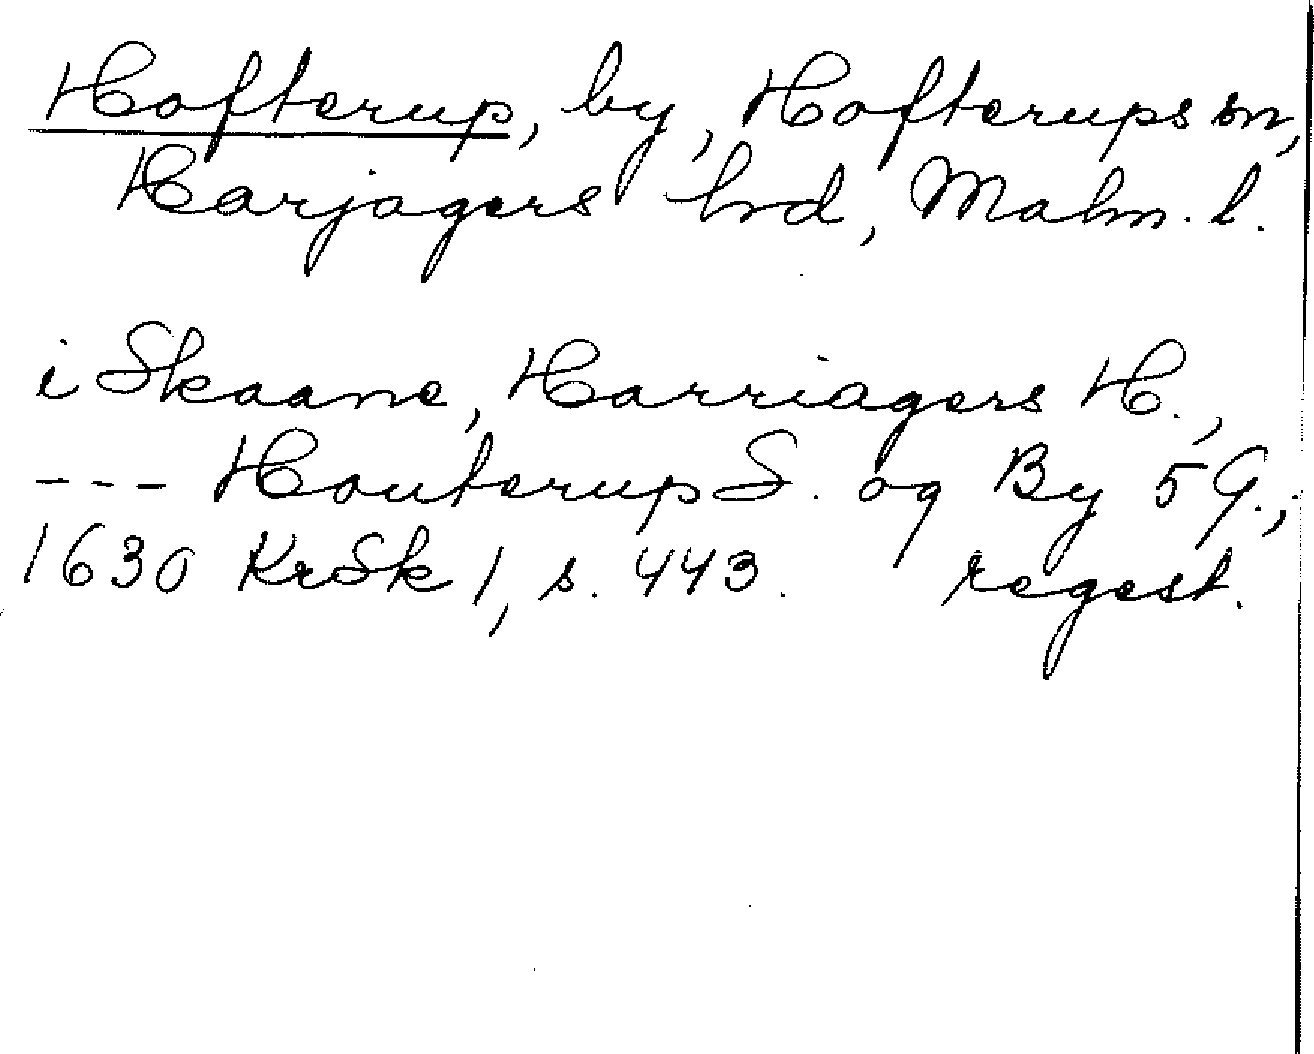 Hofterup, by, Hofterups sn,
Harjagers hd, Malm. l.
i Skaane, Harriagers H.,
--- Houterup S. og By 5 G.,
1630 KrSk 1, s. 443. regest.